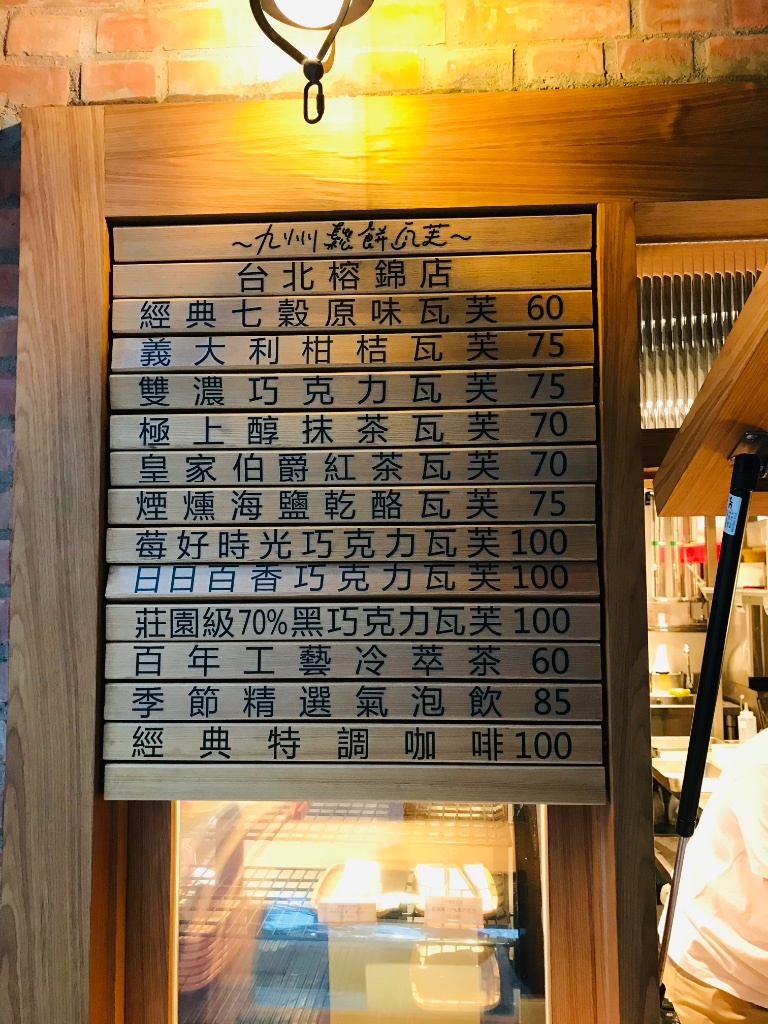 ~九州鬆餅瓦芙~
台北榕錦店
經典七穀原味瓦芙 60
義大利柑桔瓦芙 75
雙濃巧克力瓦芙 75
極上醇抹茶瓦芙 70
皇家伯爵紅茶瓦芙 70
煙燻海鹽乾酪瓦芙 75
莓好時光巧克力瓦芙 100
日日百香巧克力瓦芙 100
莊園級70%黑巧克力瓦芙 100
百年工藝冷萃茶 60
季節精選氣泡飲 85
經典特調咖啡 100